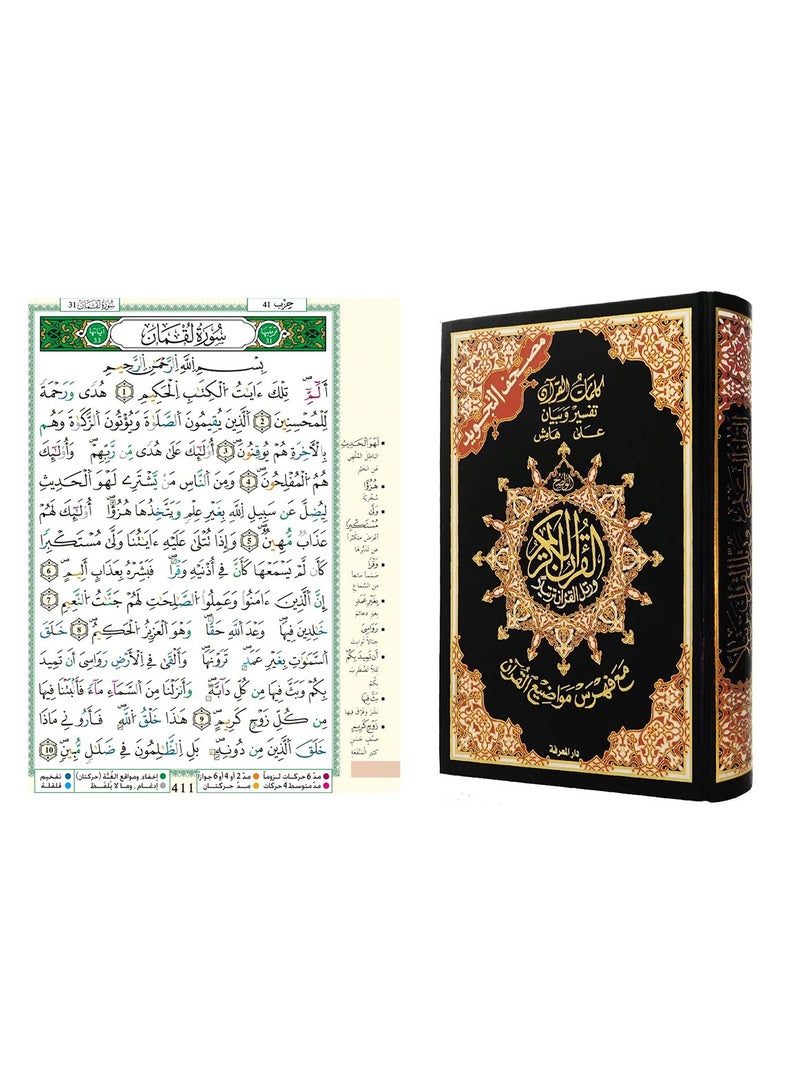 حِزب 41
سُورَةُ لُقْمَان 31
ترتيبها 31
سُورَةُ لُقْمَان
آياتها 33
بِسْمِ اللَّهِ الرَّحْمَٰنِ الرَّحِيمِ
أَلَٓمِّٓۖ تِلْكَ ءَايَٰتُ اُ۬لْكِتَٰبِ اِ۬لْحَكِيمِ 1 هُدىٗ وَرَحْمَةٗ
لِّلْمُحْسِنِينَ 2 اَ۬لذِينَ يُقِيمُونَ اَ۬لصَّلَوٰةَ وَيُوتُونَ اَ۬لزَّكَوٰةَ وَهُم
بِالَاخِرَةِ هُمْ يُوقِنُونَۖ 3 أُوْلَٰٓئِكَ عَلَىٰ هُدىٗ مِّن رَّبِّهِمْۖ وَأُوْلَٰٓئِكَ
هُمُ اُ۬لْمُفْلِحُونَۖ 4 وَمِنَ اَ۬لنَّاسِ مَنْ يَّشْتَرِے لَهْوَ اَ۬لْحَدِيثِ
لِيُضِلَّ عَن سَبِيلِ اِ۬للَّهِ بِغَيْرِ عِلْمٖ وَيَتَّخِذُهَا هُزُؤاًۖ اُوْلَٰٓئِكَ لَهُمْ
عَذَابٞ مُّهِينٞۖ 5 وَإِذَا تُتْلَىٰ عَلَيْهِ ءَايَٰتُنَا وَلَّىٰ مُسْتَكْبِراٗ
كَأَن لَّمْ يَسْمَعْهَا كَأَنَّ فِےٓ أُذْنَيْهِ وَقْراٗۖ فَبَشِّرْهُ بِعَذَابٍ اَلِيمٍۖ 6
إِنَّ اَ۬لذِينَ ءَامَنُواْ وَعَمِلُواْ اُ۬لصَّٰلِحَٰتِ لَهُمْ جَنَّٰتُ اُ۬لنَّعِيمِ 7
خَٰلِدِينَ فِيهَاۖ وَعْدَ اَ۬للَّهِ حَقّاٗۖ وَهُوَ اَ۬لْعَزِيزُ اُ۬لْحَكِيمُۖ 8 خَلَقَ
اَ۬لسَّمَٰوَٰتِ بِغَيْرِ عَمَدٖۖ تَرَوْنَهَاۖ وَأَلْقَىٰ فِے اِ۬لَارْضِ رَوَٰسِيَ أَن تَمِيدَ
بِكُمْ وَبَثَّ فِيهَا مِن كُلِّ دَآبَّةٖۖ وَأَنزَلْنَا مِنَ اَ۬لسَّمَآءِ مَآءٗ فَأَنۢبَتْنَا فِيهَا
مِن كُلِّ زَوْجٖ كَرِيمٍۖ 9 هَٰذَا خَلْقُ اُ۬للَّهِۖ فَأَرُونِے مَاذَا
خَلَقَ اَ۬لذِينَ مِن دُونِهِۦۖ بَلِ اِ۬لظَّٰلِمُونَ فِے ضَلَٰلٖ مُّبِينٖۖ 10
لَهْوَ الْحَدِيثِ
الباطل الملهي
عن الخير
هُزُؤاً
سخرية
وَلَّى
مُسْتَكْبِراً
أعرض متكبراً
عن تدبرها
وَقْراً
صمماً مانعاً
من السماع
بِغَيْرِ عَمَدٍ
بغير دعائم
رَوَاسِيَ
جبالاً ثوابت
أَن تَمِيدَ بِكُمْ
لئلا تضطرب
بكم
بَثَّ فِيهَا
نشر وفرّق فيها
زَوْجٍ كَرِيمٍ
صنف حسن
كثير المنفعة
مدّ 6 حركات لزوماً
مدّ 2 أو 4 أو 6 جوازاً
إخفاء ومواقع الغُنَّة (حركتان)
تفخيم
مدّ متوسط 4 حركات
مدّ حركتان
411
إدغام ، وما لا يُلفَظ
قلقلة
مصحف التجويد
كلمات القرآن
تفسير وبيان
على هامش
القرآن الكريم
ورتل القرآن ترتيلا
مع فهرس مواضيع القرآن
دار المعرفة
القرآن الكريم ورتل القرآن ترتيلا